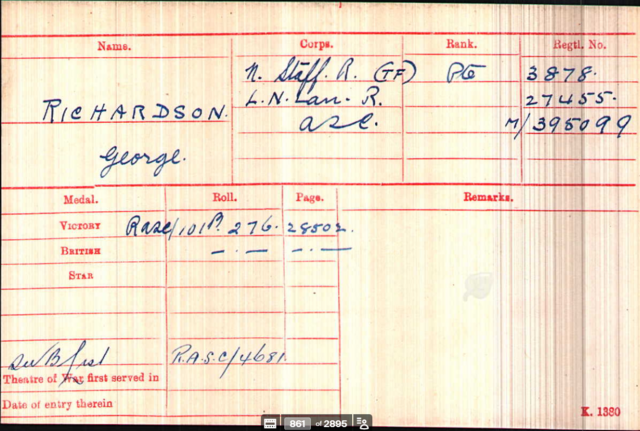 Name. Corps. Rank. Regtl. No.
N. Staff. R. (TF) Pte 3878.
L.N. Lan. R. 27455.
RICHARDSON. A.S.C. M/395099
George.
Medal. Roll. Page. Remarks.
VICTORY RASC/101 B. 276. 28502.
BRITISH — . — — . —
STAR
SWB list R.A.S.C/4681
Theatre of War first served in
Date of entry therein
K. 1380
861 of 2895